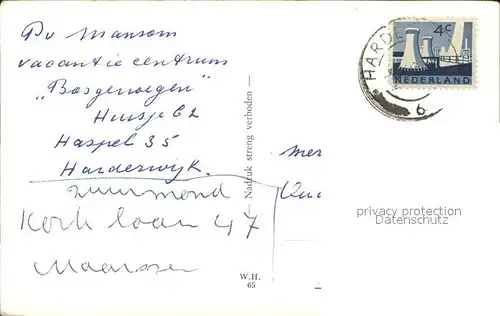 vacantie centrum
"Bosgenoegen"
Huisje 62
Haspel 35
Harderwijk.
Zuurmond
Kerk laan 47
Maarssen
— Nadruk streng verboden —
W.H.
65
HARDE
6
4c
NEDERLAND
privacy protection
Datenschutz